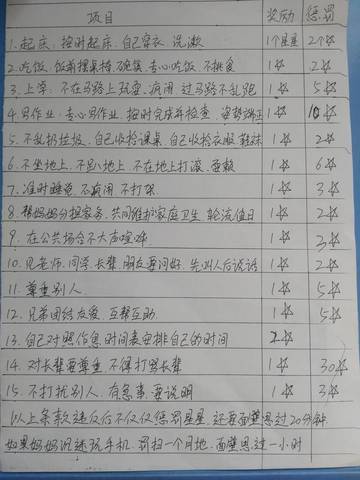 项目 奖励 惩罚
1.起床：按时起床，自己穿衣 洗漱 1个星星 2个☆
2.吃饭，饭前摆桌椅、碗筷，专心吃饭，不挑食 1☆ 2☆
3.上学：不在马路上玩耍，疯闹，过马路不乱跑 1☆ 5☆
4.写作业，专心写作业，按时完成并检查，姿势端正 1☆ 10☆
5.不乱扔垃圾，自己收拾课桌，自己收拾衣服鞋袜 1☆ 2☆
6.不坐地上，不趴地上 不在地上打滚，耍赖 1☆ 6☆
7.准时睡觉 不疯闹 不打架 1☆ 3☆
8.帮妈妈分担家务，共同维护家庭卫生 轮流值日 1☆ 2☆
9.在公共场合不大声喧哗 1☆ 3☆
10.见老师，同学，长辈，朋友要问好，先叫人后说话 1☆ 2☆
11.尊重别人 1☆ 5☆
12.兄弟团结友爱，互帮互助 1☆ 5☆
13.自己对照作息时间表安排自己的时间 2☆
14.对长辈要尊重，不得打骂长辈 1☆ 30☆
15.不打扰别人，有急事，要说明 1☆ 3☆
以上条款违反后不仅仅惩罚星星，还要面壁思过20分钟
如果妈妈沉迷玩手机，罚扫一个月地，面壁思过一小时